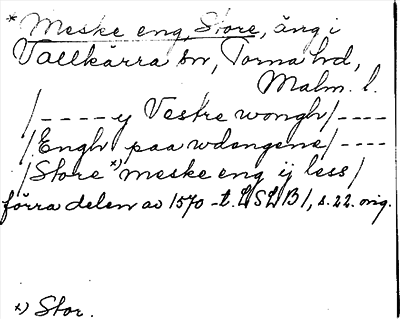 * Meske eng, Store, äng i
Vallkärra sn, Torna hd,
Malm. l.
/---- y Vestre wongh/----
/Engh paa wdengene/----
/Store *) meske eng ij less/
förra delen av 1570-t. LSLB 1, s. 22. orig.
*) Stor.